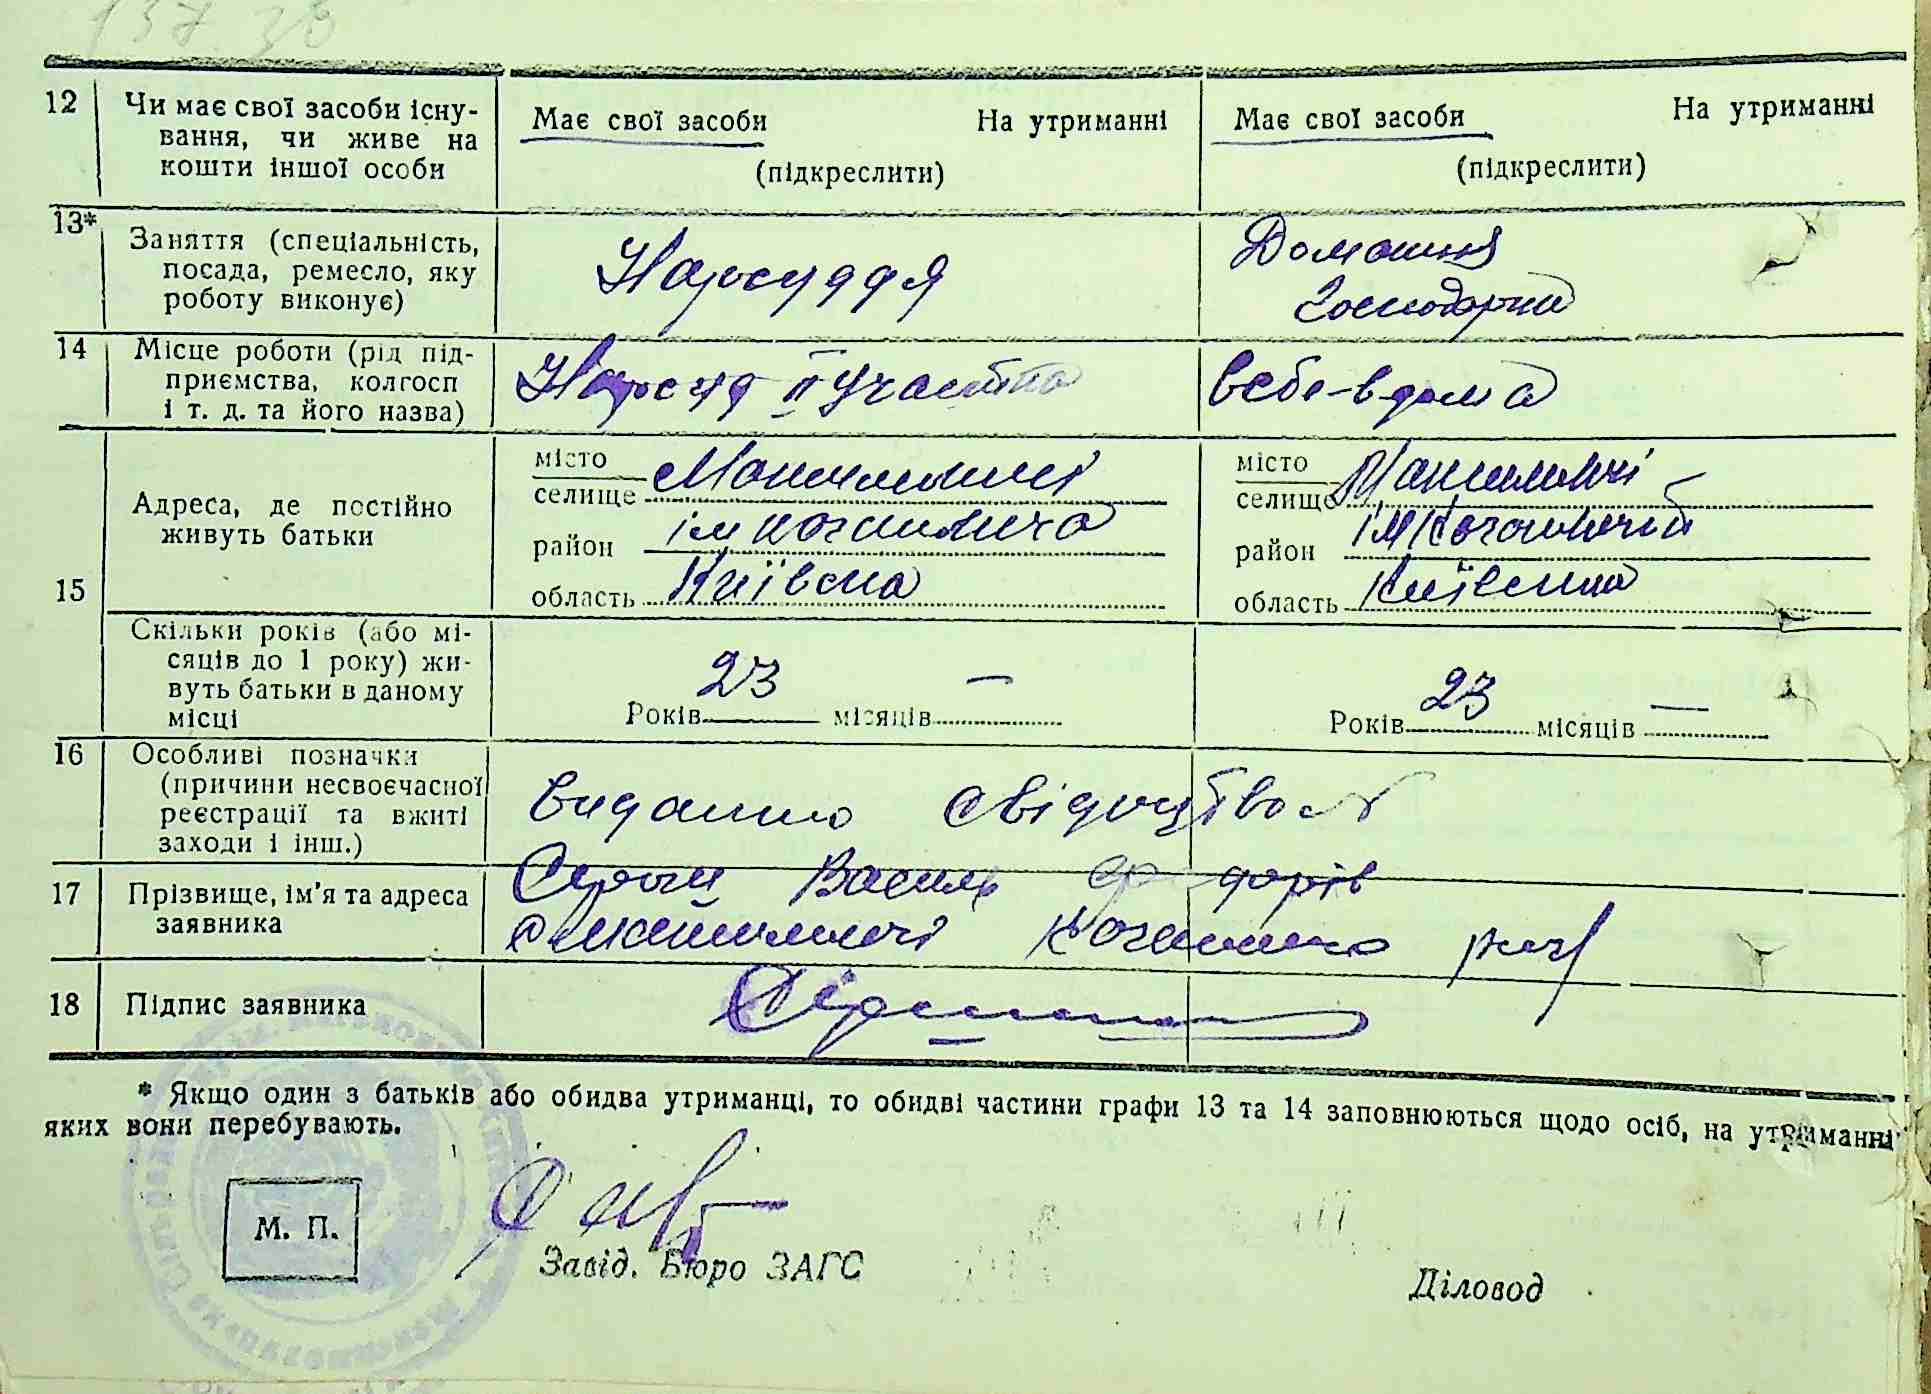 137 38
12 Чи має свої засоби існу-
вання, чи живе на
кошти іншої особи
Має свої засоби На утриманні
(підкреслити)
Має свої засоби На утриманні
(підкреслити)
13* Заняття (спеціальність,
посада, ремесло, яку
роботу виконує)
Нарсуддя
Домашня
Господарка
14 Місце роботи (рід під-
приємства, колгосп
і т. д. та його назва)
Нарсуд ІІ участка
в себе в дома
15 Адреса, де постійно
живуть батьки
місто
селище Максимовичі
район ім Кагановича
область Київська
місто
селище Максимовичі
район ім Кагановича
область Київська
Скільки років (або мі-
сяців до 1 року) жи-
вуть батьки в даному
місці
Років 23 місяців —
Років 23 місяців —
16 Особливі позначки
(причини несвоєчасної
реєстрації та вжиті
заходи і інш.)
Виданно свідоцтво
17 Прізвище, ім'я та адреса
заявника
Василь
Кагановича
18 Підпис заявника
* Якщо один з батьків або обидва утриманці, то обидві частини графи 13 та 14 заповнюються щодо осіб, на утриманні
яких вони перебувають.
М. П.
Завід. Бюро ЗАГС
Діловод